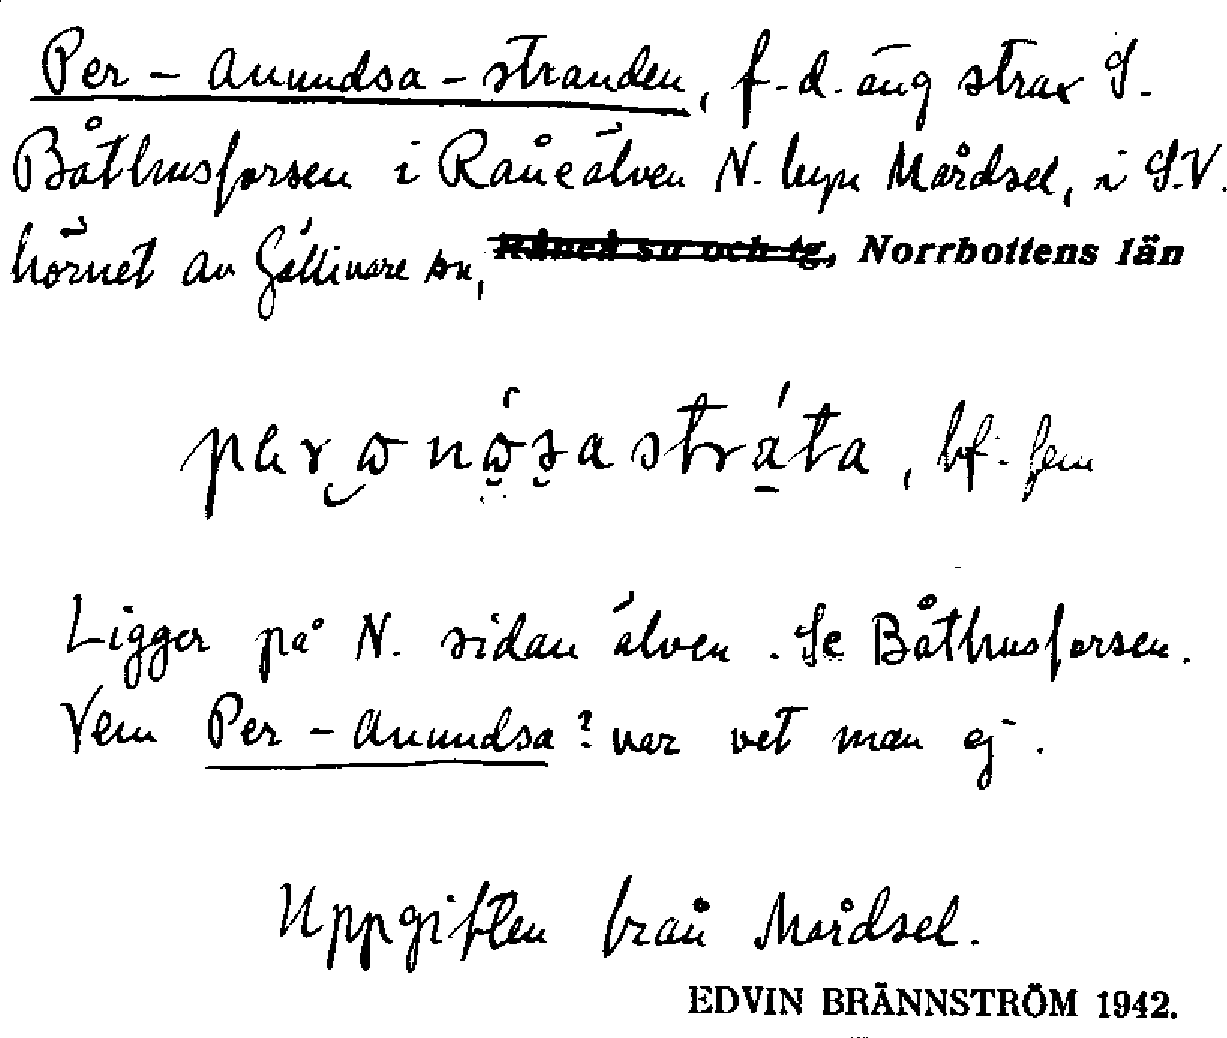 Per-Anundsa-stranden, f.d. äng strax S.
Båthusforsen i Råneälven N. byn Mårdsel, i S.V.
hörnet av Gällivare sn, ~~Råneå sn och tg~~, Norrbottens län
bf. fem
Ligger på N. sidan älven. Se Båthusforsen.
Vem Per-Anundsa? var vet man ej.
Uppgiften från Mårdsel.
EDVIN BRÄNNSTRÖM 1942.